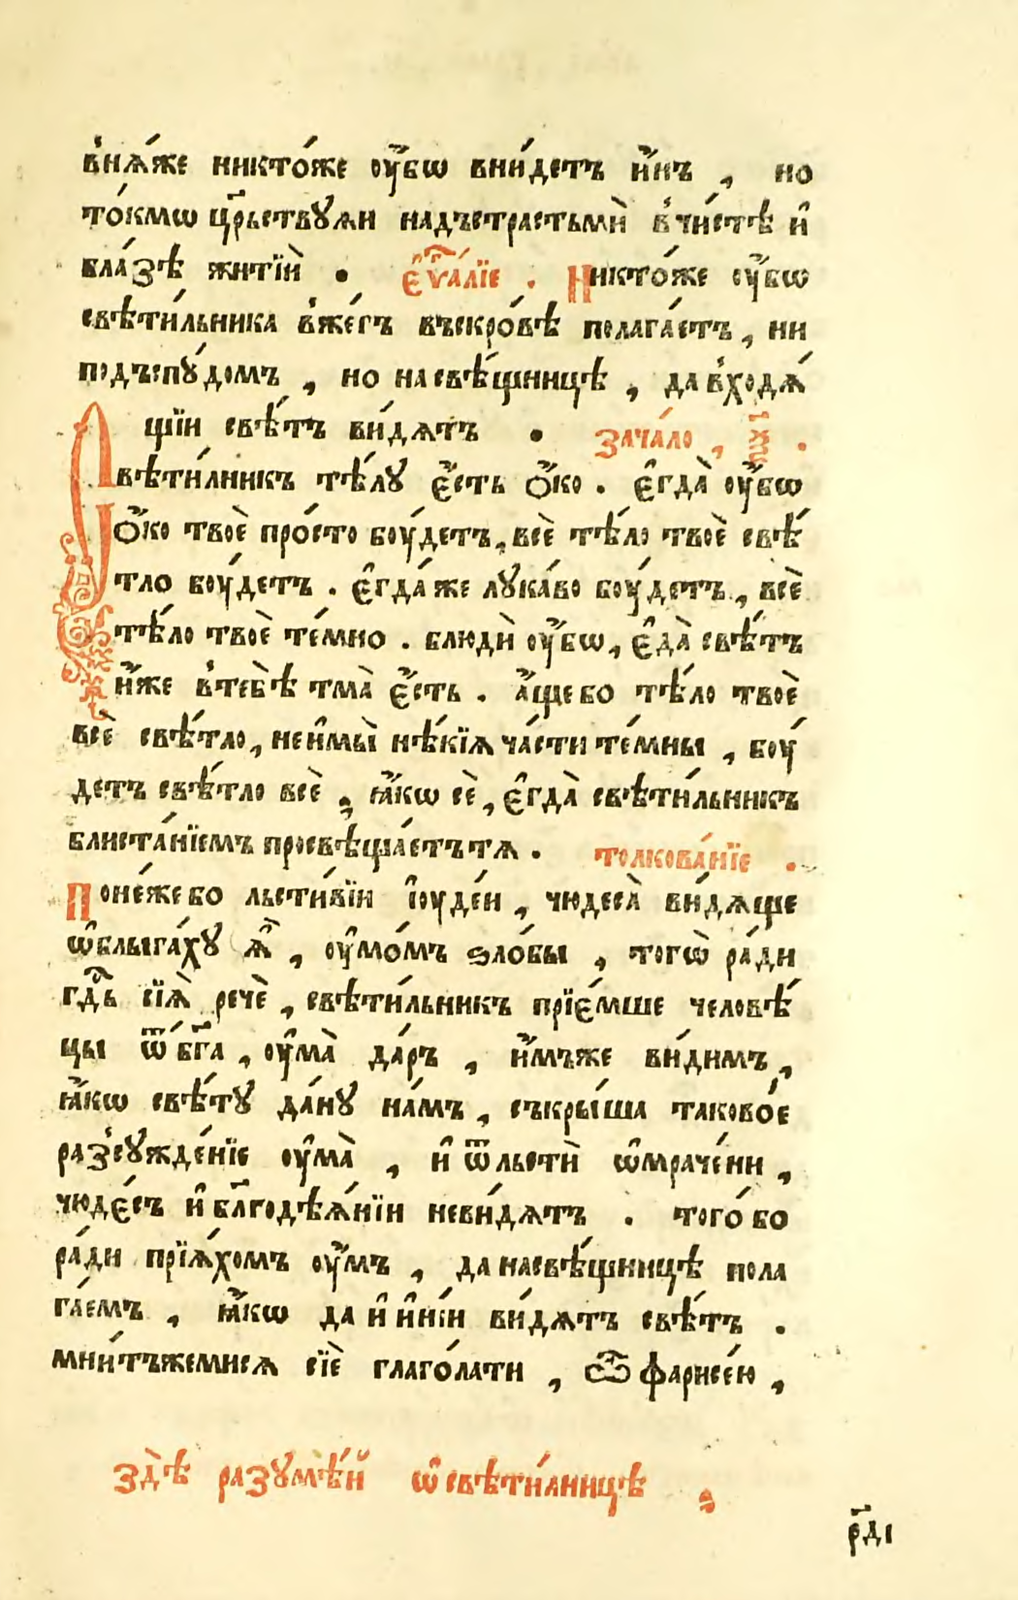 в̾ня́же никто́же ᲂу҆́бѡ вни́детъ и҆́нъ , но
то́кмѡ цр҃ьствꙋѧи надъстрастьмѝ в̾чи́стѣ и҆
бла́зѣ житїѝ . є҆ѵⷢ҇а́лїе . Никто́же ᲂу҆́бѡ
свѣти́льника в̾же́гъ въскро́вѣ полага́етъ , ни
подъспꙋ́домъ , но насвѣ́щницѣ , да в̾ходѧ́
щїи свѣ́тъ ви́дѧтъ . зача́ло ,
Свѣти́лникъ тѣ́лꙋ є҆́сть ѻ҆́ко . є҆гда̀ ᲂу҆́бѡ
ѻ҆́ко твоѐ про́сто бᲂу́детъ , всѐ тѣ́ло твоѐ свѣ́
тло бᲂу́детъ . є҆гда́ же лꙋка́во бᲂу́детъ , всѐ
тѣ́ло твоѐ те́мно . блюдѝ ᲂу҆́бѡ , є҆да̀ свѣ́тъ
и҆́же в̾тебѣ̀ тма̀ є҆́сть . а҆́ще бо тѣ́ло твоѐ
всѐ свѣ́тло , не и҆мы̀ нѣ́кїѧ ча́сти те́мны , бᲂу́
детъ свѣ́тло всѐ , ꙗ҆́кѡ сѐ , є҆гда̀ свѣти́льникъ
блиста́нїемъ просвѣща́етътѧ . толкова́нїе .
Поне́же бо льсти́вїи і҆ᲂуде́и , чюдеса̀ ви́дѧще
ѡ҆блыга́хꙋ ѧ҆̀ , ᲂу҆мо́мъ ѕло́бы , тогѡ̀ ра́ди
гдⷭ҇ь сїѧ̀ речѐ , свѣти́льникъ прїе́мше человѣ́
цы ѿ бг҃а , ᲂу҆ма̀ да́ръ , и҆́мъже ви́димъ ,
ꙗ҆́кѡ свѣ́тꙋ да́нꙋ на́мъ , съкры́ша таково́е
раз̾сꙋжде́нїе ᲂу҆ма̀ , и҆ ѿльстѝ ѡ҆мраче́ни ,
чюде́съ и҆ бл҃годѣѧ́нїи неви́дѧтъ . того́ бо
ра́ди прїѧ́хомъ ᲂу҆́мъ , да насвѣ́щницѣ пола
га́емъ , ꙗ҆́кѡ да и҆ и҆ні́и ви́дѧтъ свѣ́тъ .
мни́тъжемисѧ сїѐ глаго́лати , ѽ фарисе́ю ,
здѐ разꙋмѣ́й ѡ҆ свѣти́лницѣ
рд҃і